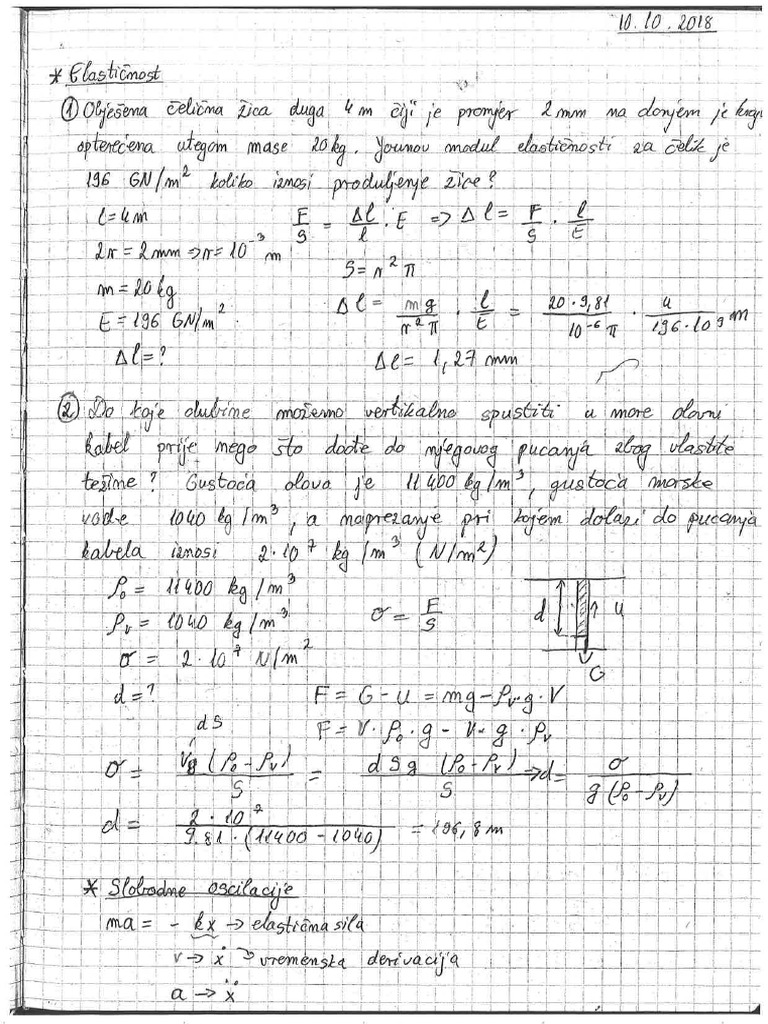 10.10.2018
* Elastičnost
① Obješena čelična žica duga 4 m čiji je promjer 2 mm na donjem je kraju
opterećena utegom mase 20 kg. Younov modul elastičnosti za čelik je
196 GN/m² koliko iznosi produljenje žice?
l = 4 m
F/S = Δl/l · E ⇒ Δl = F/S · l/E
2r = 2 mm ⇒ r = 10⁻³ m
S = r²π
m = 20 kg
Δl = mg/r²π · l/E = 20·9,81/10⁻⁶π · 4/196·10⁹ m
E = 196 GN/m²
Δl = ?
Δl = 1,27 mm
② Do koje dubine možemo vertikalno spustiti u more olovni
kabel prije nego što dođe do njegovog pucanja zbog vlastite
težine? Gustoća olova je 11400 kg/m³, gustoća morske
vode 1040 kg/m³, a naprezanje pri kojem dolazi do pucanja
kabela iznosi 2·10⁷ kg/m³ (N/m²)
ρ₀ = 11400 kg/m³
ρᵥ = 1040 kg/m³
σ = F/S
d
u
σ = 2·10⁷ N/m²
G
d = ?
F = G - u = mg - ρᵥ·g·V
F = V·ρ₀·g - V·g·ρᵥ
dS
σ = Vg(ρ₀-ρᵥ)/S = dSg(ρ₀-ρᵥ)/S ⇒ d = σ/g(ρ₀-ρᵥ)
d = 2·10⁷/9.81·(11400-1040) = 196,8 m
* Slobodne oscilacije
ma = - kx → elastična sila
v → ẋ → vremenska derivacija
a → ẍ